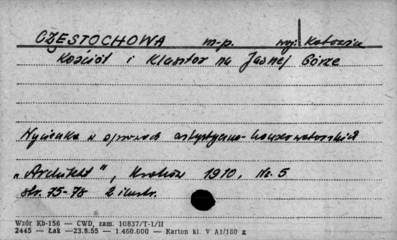 CZĘSTOCHOWA m-p. woj. Katowice
Kościół i Klasztor na Jasnej Górze
Wycieczka w sprawach artystyczno-konserwatorskich
„Architekt", Kraków 1910, Nr. 5
str. 75-78 2 ilustr.
Wzór Kb-156 — CWD, zam. 10837/T-1/II
2445 — Łak —23.8.55 — 1.460.000 — Karton kl. V A1/180 g